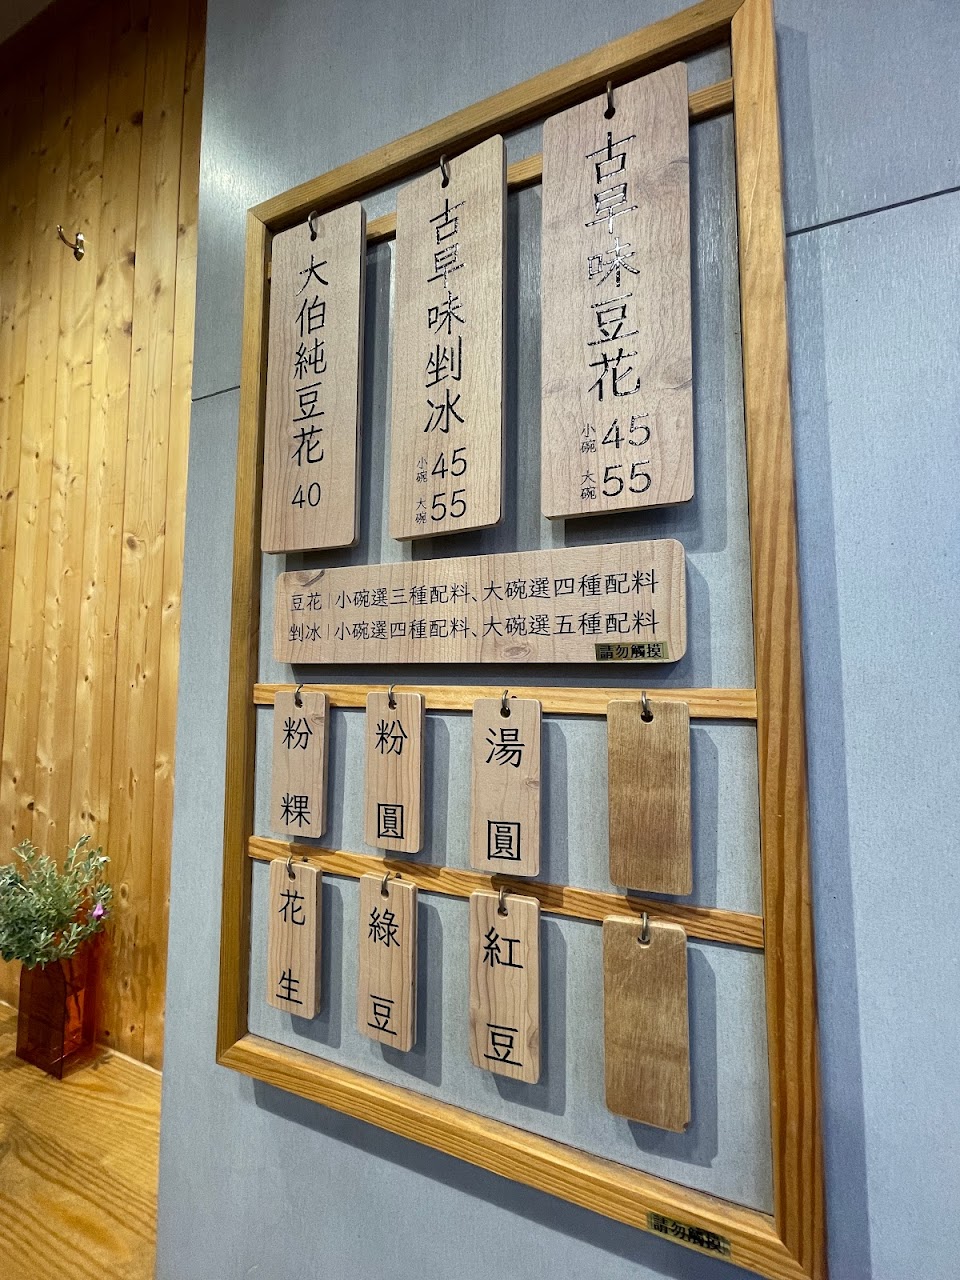 古早味豆花
小碗 45
大碗 55
古早味剉冰
小碗 45
大碗 55
大伯純豆花
40
豆花|小碗選三種配料、大碗選四種配料
剉冰|小碗選四種配料、大碗選五種配料
請勿觸摸
湯圓
粉圓
粉粿
紅豆
綠豆
花生
請勿觸摸